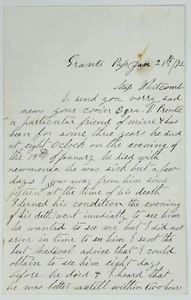 Grants Pass Jan 21th /92
Miss Whitcomb
I send you verry sad
news your cosin Ezra W. Prentis
a particular friend of mine & has
been for some three years he died
at eight Oclock on the evening of
the 19th of January he died with
newmonia he was sick but a few
days I was away from him some
at the time of his death
I lerned his condition the evening
of his deth went imediatly to see him
he wanted to see me but I did not
arive in time to see him I sent the
best medical advice that I could
to see him eight days
before he died & I heard that
he was better untill within two hours